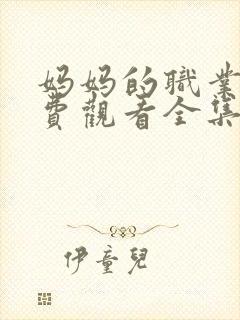 妈妈的職業
費觀看全集
伊童兒